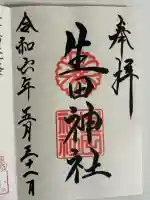 奉拝
生田神社
令和六年五月三十一日